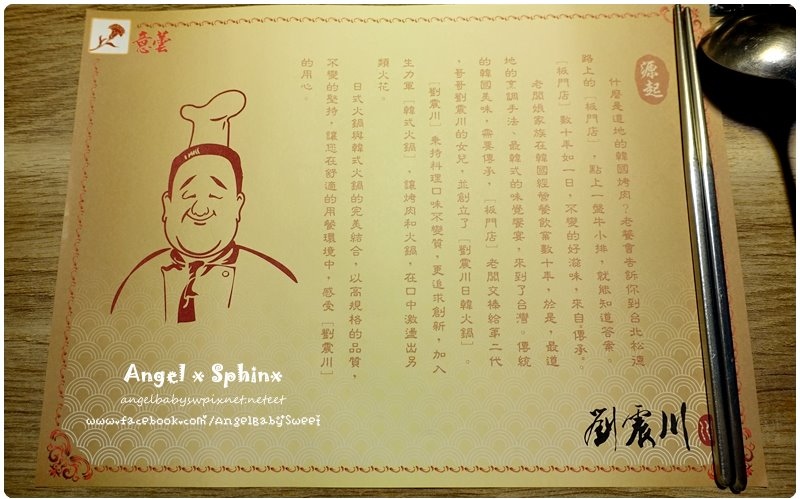 意饕
源起
什麼是道地的韓國烤肉？老饕會告訴你到台北松德
路上的［板門店］，點上一盤牛小排，就能知道答案。
［板門店］數十年如一日，不變的好滋味，來自傳承。
老闆娘家族在韓國經營餐飲業數十年，於是，最道
地的烹調手法、最韓式的味覺饗宴，來到了台灣。傳統
的韓國美味，需要傳承，［板門店］老闆交棒給第二代
，哥哥劉震川的女兒，並創立了［劉震川日韓火鍋］。
［劉震川］秉持料理口味不變質，更追求創新，加入
生力軍［韓式火鍋］，讓烤肉和火鍋，在口中激盪出另
類火花。
日式火鍋與韓式火鍋的完美結合，以高規格的品質，
不變的堅持，讓您在舒適的用餐環境中，感受［劉震川］
的用心。
劉震川
Angel x Sphinx
angelbabyswpixnet.neteet
www.facebook.com/AngelBabySweei